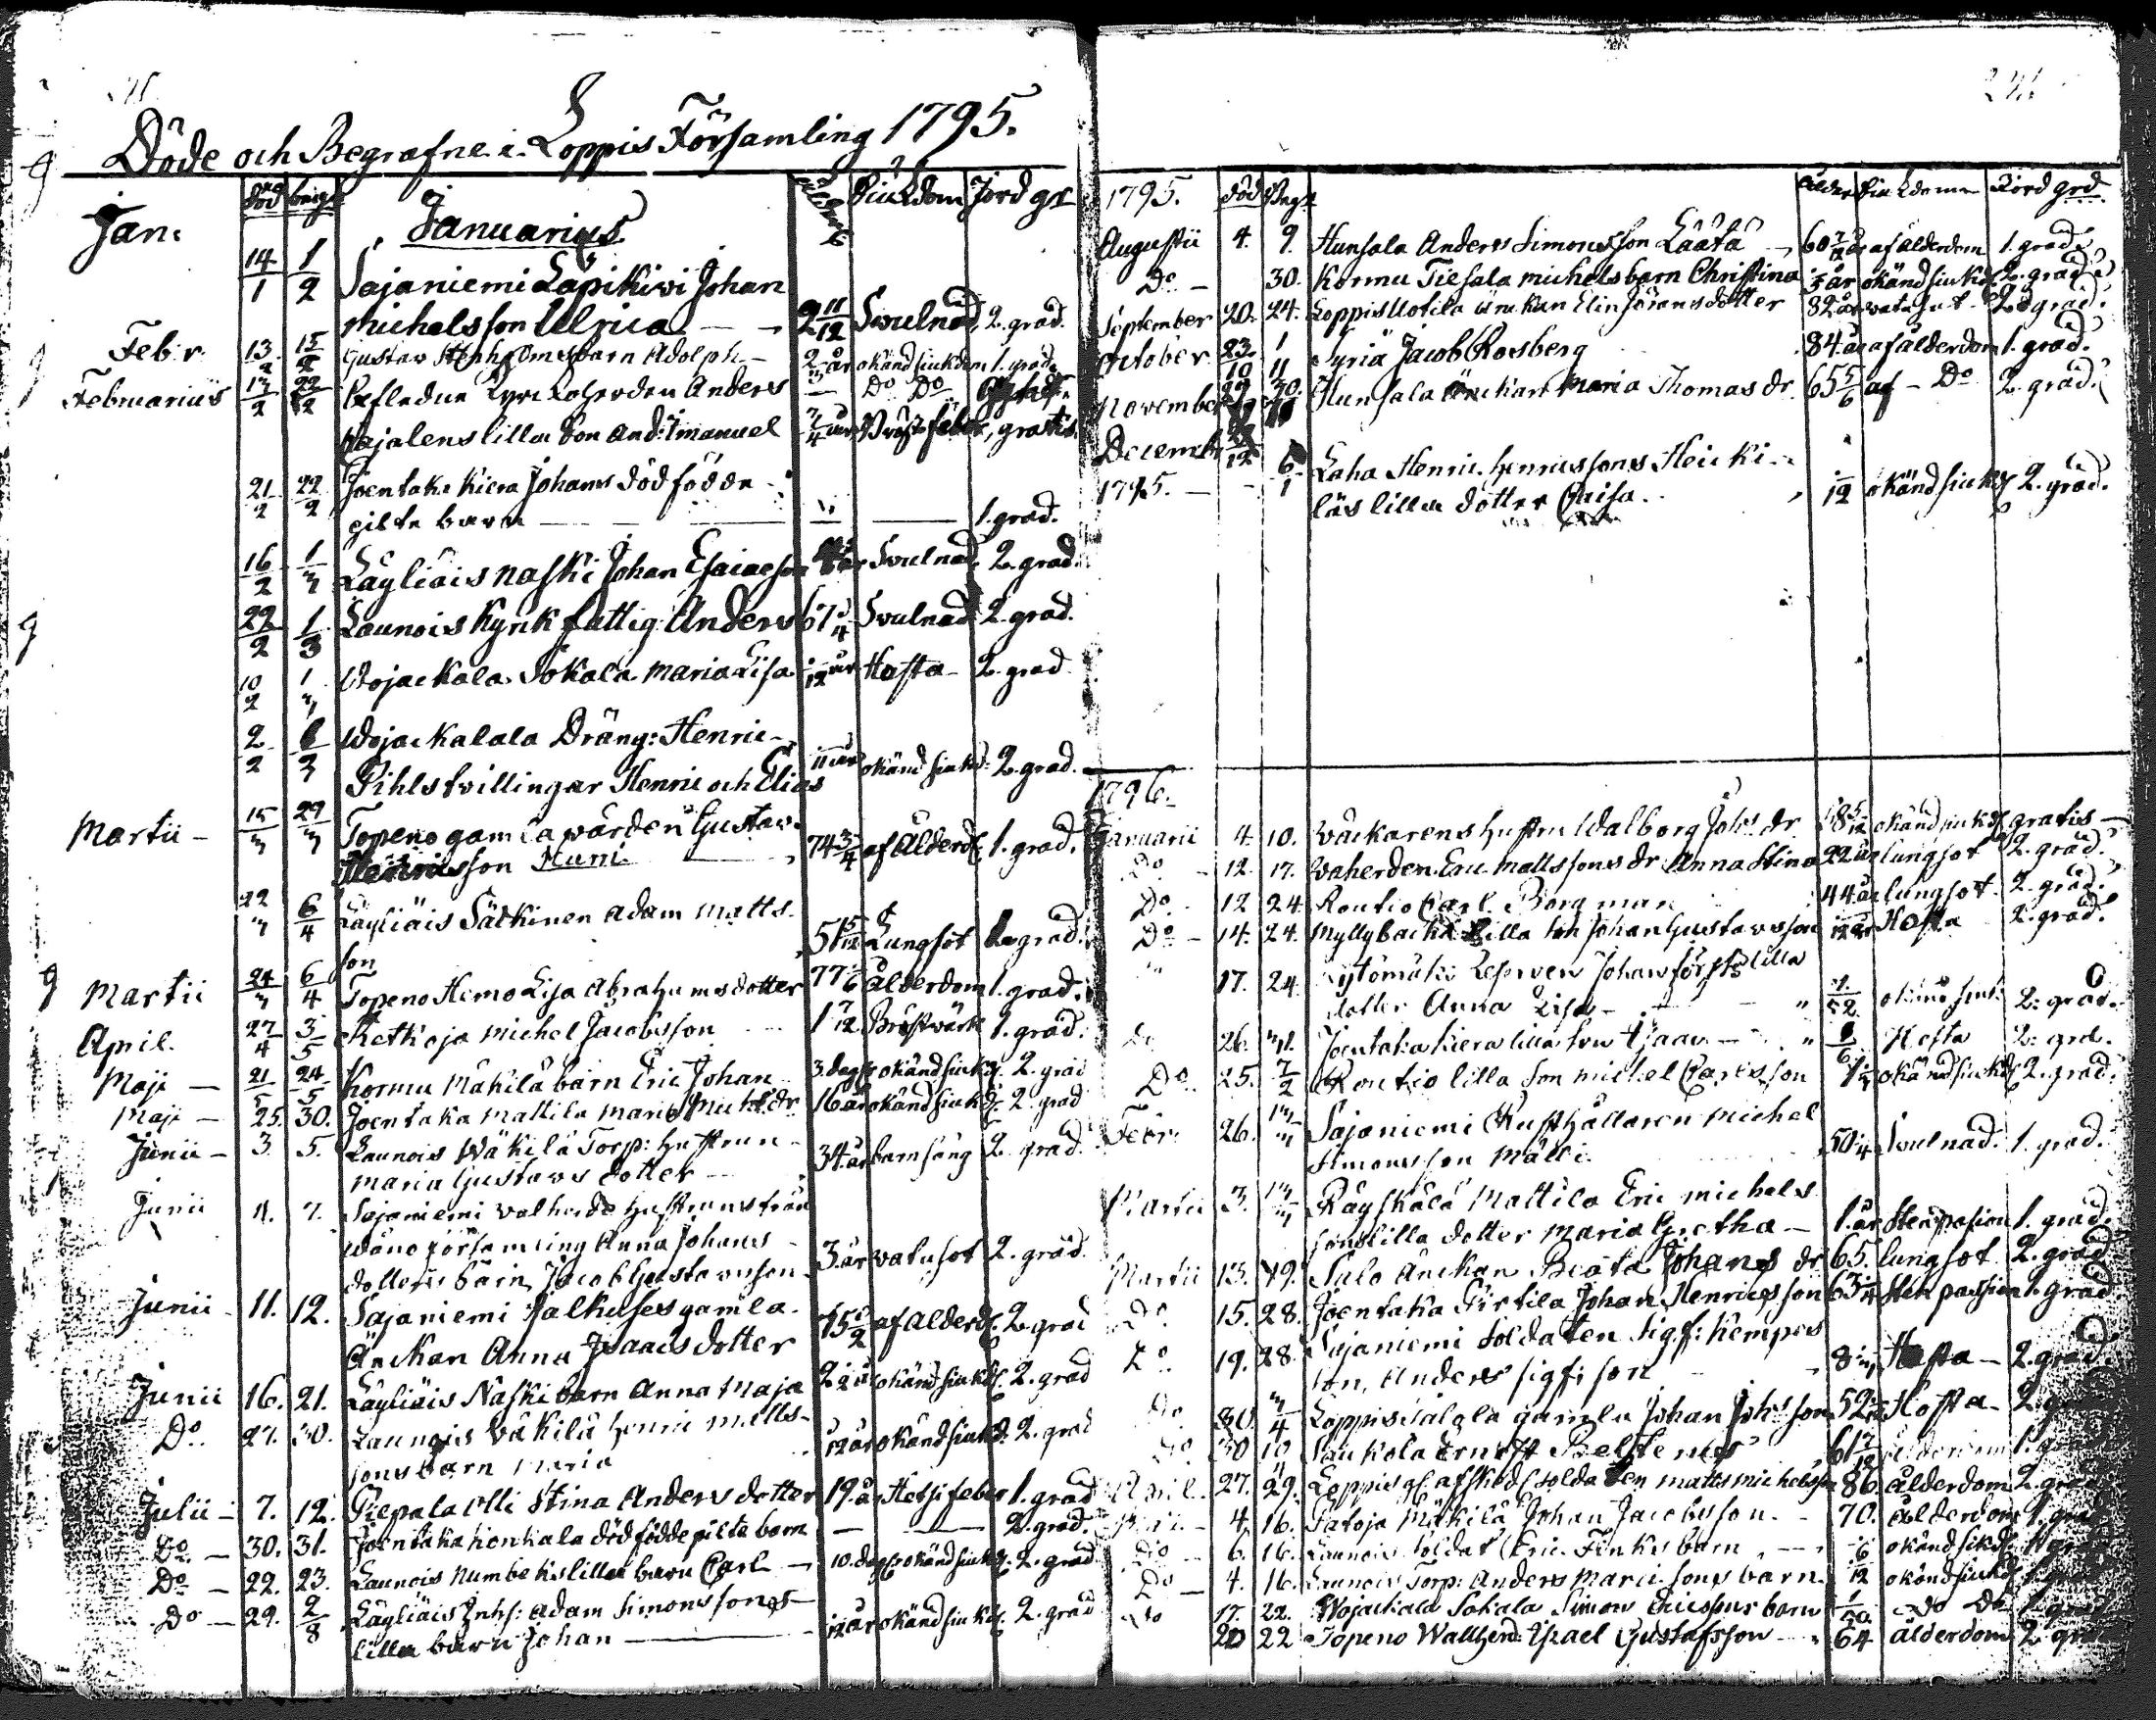 Döde och Begrafne i Loppis Församling 1795.
död begr Siukdom Jord gr
Jan: Januarius
14/1 1/2 Sajaniemi Läpikivi Johan
Michelsson Ulrica — 2 11/12 Svulnad, 2. grad.
Febr. 13/2 15/2 Gustav barn Adolph — okänd siukdom 1. grad.
Februarius 13/2 22/2 Anders — Do Do
lilla Son And: Imanuel 3/4 år gratis.
21/2 22/2 Joentaka Kiera Johans dödfödde
gilte barn — 1. grad.
16/2 1/3 Läyliäis Naski Johan Esaiaeson Svulnad. 2. grad.
22/2 1/3 Launois Kynk fattig Anders 67 Svulnad 2. grad.
10/2 1/3 Wojackala Sokala Maria Lisa Hosta — 2. grad
2/2 Wojackalala Dräng: Henric
Pihls tvillingar Henric och Elias okänd siukd: 2. grad.
Martii — 15/3 29/3 Topeno gamla wärden Gustav
Henricsson Muni 74 3/4 af Ålderd: 1. grad.
22/3 6/4 Läyliäis Särkinen Adam Matts-
son Lungsot grad.
Martii 24/3 6/4 Topeno Hemo Lisa Abrahamsdotter 77 Ålderdom 1. grad.
April. 27/4 3/5 Ketkoja Michel Jacobsson 1 Bröstvärk 1. grad.
Maji — 21/5 24/5 Kormu Mäkilä barn Eric Johan 3. dag: okänd siukd: 2. grad
Maji — 25. 30. Joentaka Mattila Maria Mich: dr 16 år okänd siukd: 2. grad
Junii — 3 5. Launois Wäkilä Torp: hustrun
Maria Gustavs dotter — 34. år barnsäng 2. grad.
Junii 4. 7. Sajaniemi hustruns från
Wåno församling Anna Johans
dotters barn Jacob Gustavsson 3. år vatusot 2. grad.
Junii 11. 12. Sajaniemi Jalkuses gamla
Änckan Anna Isaacsdotter 75 1/2 af Ålderd: 2. grad
Junii 16. 21. Läyliäis Naski barn Anna Maja okänd siukd: 2. grad
Do 27. 30. Launois Wäkilä Henric Matts-
sons barn Maria okänd siukd. 2. grad
Julii — 7. 12. Piepala Olli Stina Anders dotter 19. år Hetsi feber 1. grad
Do — 30. 31. Joentaka Honkala dödfödde gilte barn — 2. grad.
Do — 22. 23. Launois Numbeks lilla barn Carl — 10. dag: okänd siukd: 2. grad
Do — 29. 2/8 Läyliäis Inhs: Adam Simonssons
lilla barn Johan — okänd siukd: 2. grad
1795. död Begr Ålder Siukdom Jord grd
Augustii 4. 9. Hunsala Anders Simonsson Läätä — 60 af ålderdom 1. grad.
Do — 30. Kormu Tiesala Michels barn Christina okänd siukd: 2. grad
September 20. 24. Loppis Uotila Änckan Elin Göransdotter 82 år vatusot 2. grad.
October 23/10 1/11 Syriä Jacob Rosberg 84 år af ålderdom 1. grad.
November 30. Hunsala Änckan Maria Thomas dr. 65 5/6 af — Do 2. grad.
Decemb. 6/1 Laha Henric Henricssons Heicki-
1795. — läs lilla dotter Caisa. okänd siukd: 2. grad.
1796.
Januarii 4. 10. hustru Walborg Johs dr okänd siukd: gratis —
Do — 12. 17. Waherden Eric Mattssons dr Anna Stina 22 år lungsot 2. grad.
Do 12 24. Routio Carl Borgman 44 år lungsot 2. grad.
Do — 14. 24. Myllybacka lilla son Johan Gustavsson Hosta 2. grad.
17. 24. Johan lilla
dotter Anna Lisa — 2. grad.
Do 26. Joentaka Kiera lilla son Isaac — Hosta 2. grd.
Do 25. 7/2 Routio lilla son Michel Carlsson okänd siukd: 2. grad.
Febr. 26. Sajaniemi Rusthållaren Michel
Simonsson Mälli 50 Svulnad. 1. grad.
Martii 3. Räyskälä Mattila Eric Michels
sons lilla dotter Maria Gretha — 1. år 1. grad.
Martii 13. 19. Salo Änckan Beata Johans dr 65. lungsot 2. grad
Do 15. 28. Joentaka Pirtilä Johan Henricsson 63 1. grad
Do 19. 28. Sajaniemi Soldaten Sigf: Kempes
son, Anders Sigf: son 8 Hosta — 2. grad.
Do 30. 3/4 Loppis Salala gamla Johan Johs son 52 Hosta —
Do 30 10 Saukola Ernst ålderdom 1. grad
April. 27. 29. Loppis gl afsked: Soldaten Matts Michelsson 86. ålderdom 2. grad
4. 16. Satoja Mäkilä Johan Jacobsson. 70. ålderdom 1. grad
Do 6. 16. Launois Soldat Eric Finks barn — okänd siukd:
Do — 4. 16. Launois Torp: Anders Marii sons barn. okänd siukd:
Do 17. 22. Wojackala Sokala Simon Ericssons barn Do Do
20 22 Topeno Wallherd: Israel Gustafsson — 64 ålderdom 2. grad